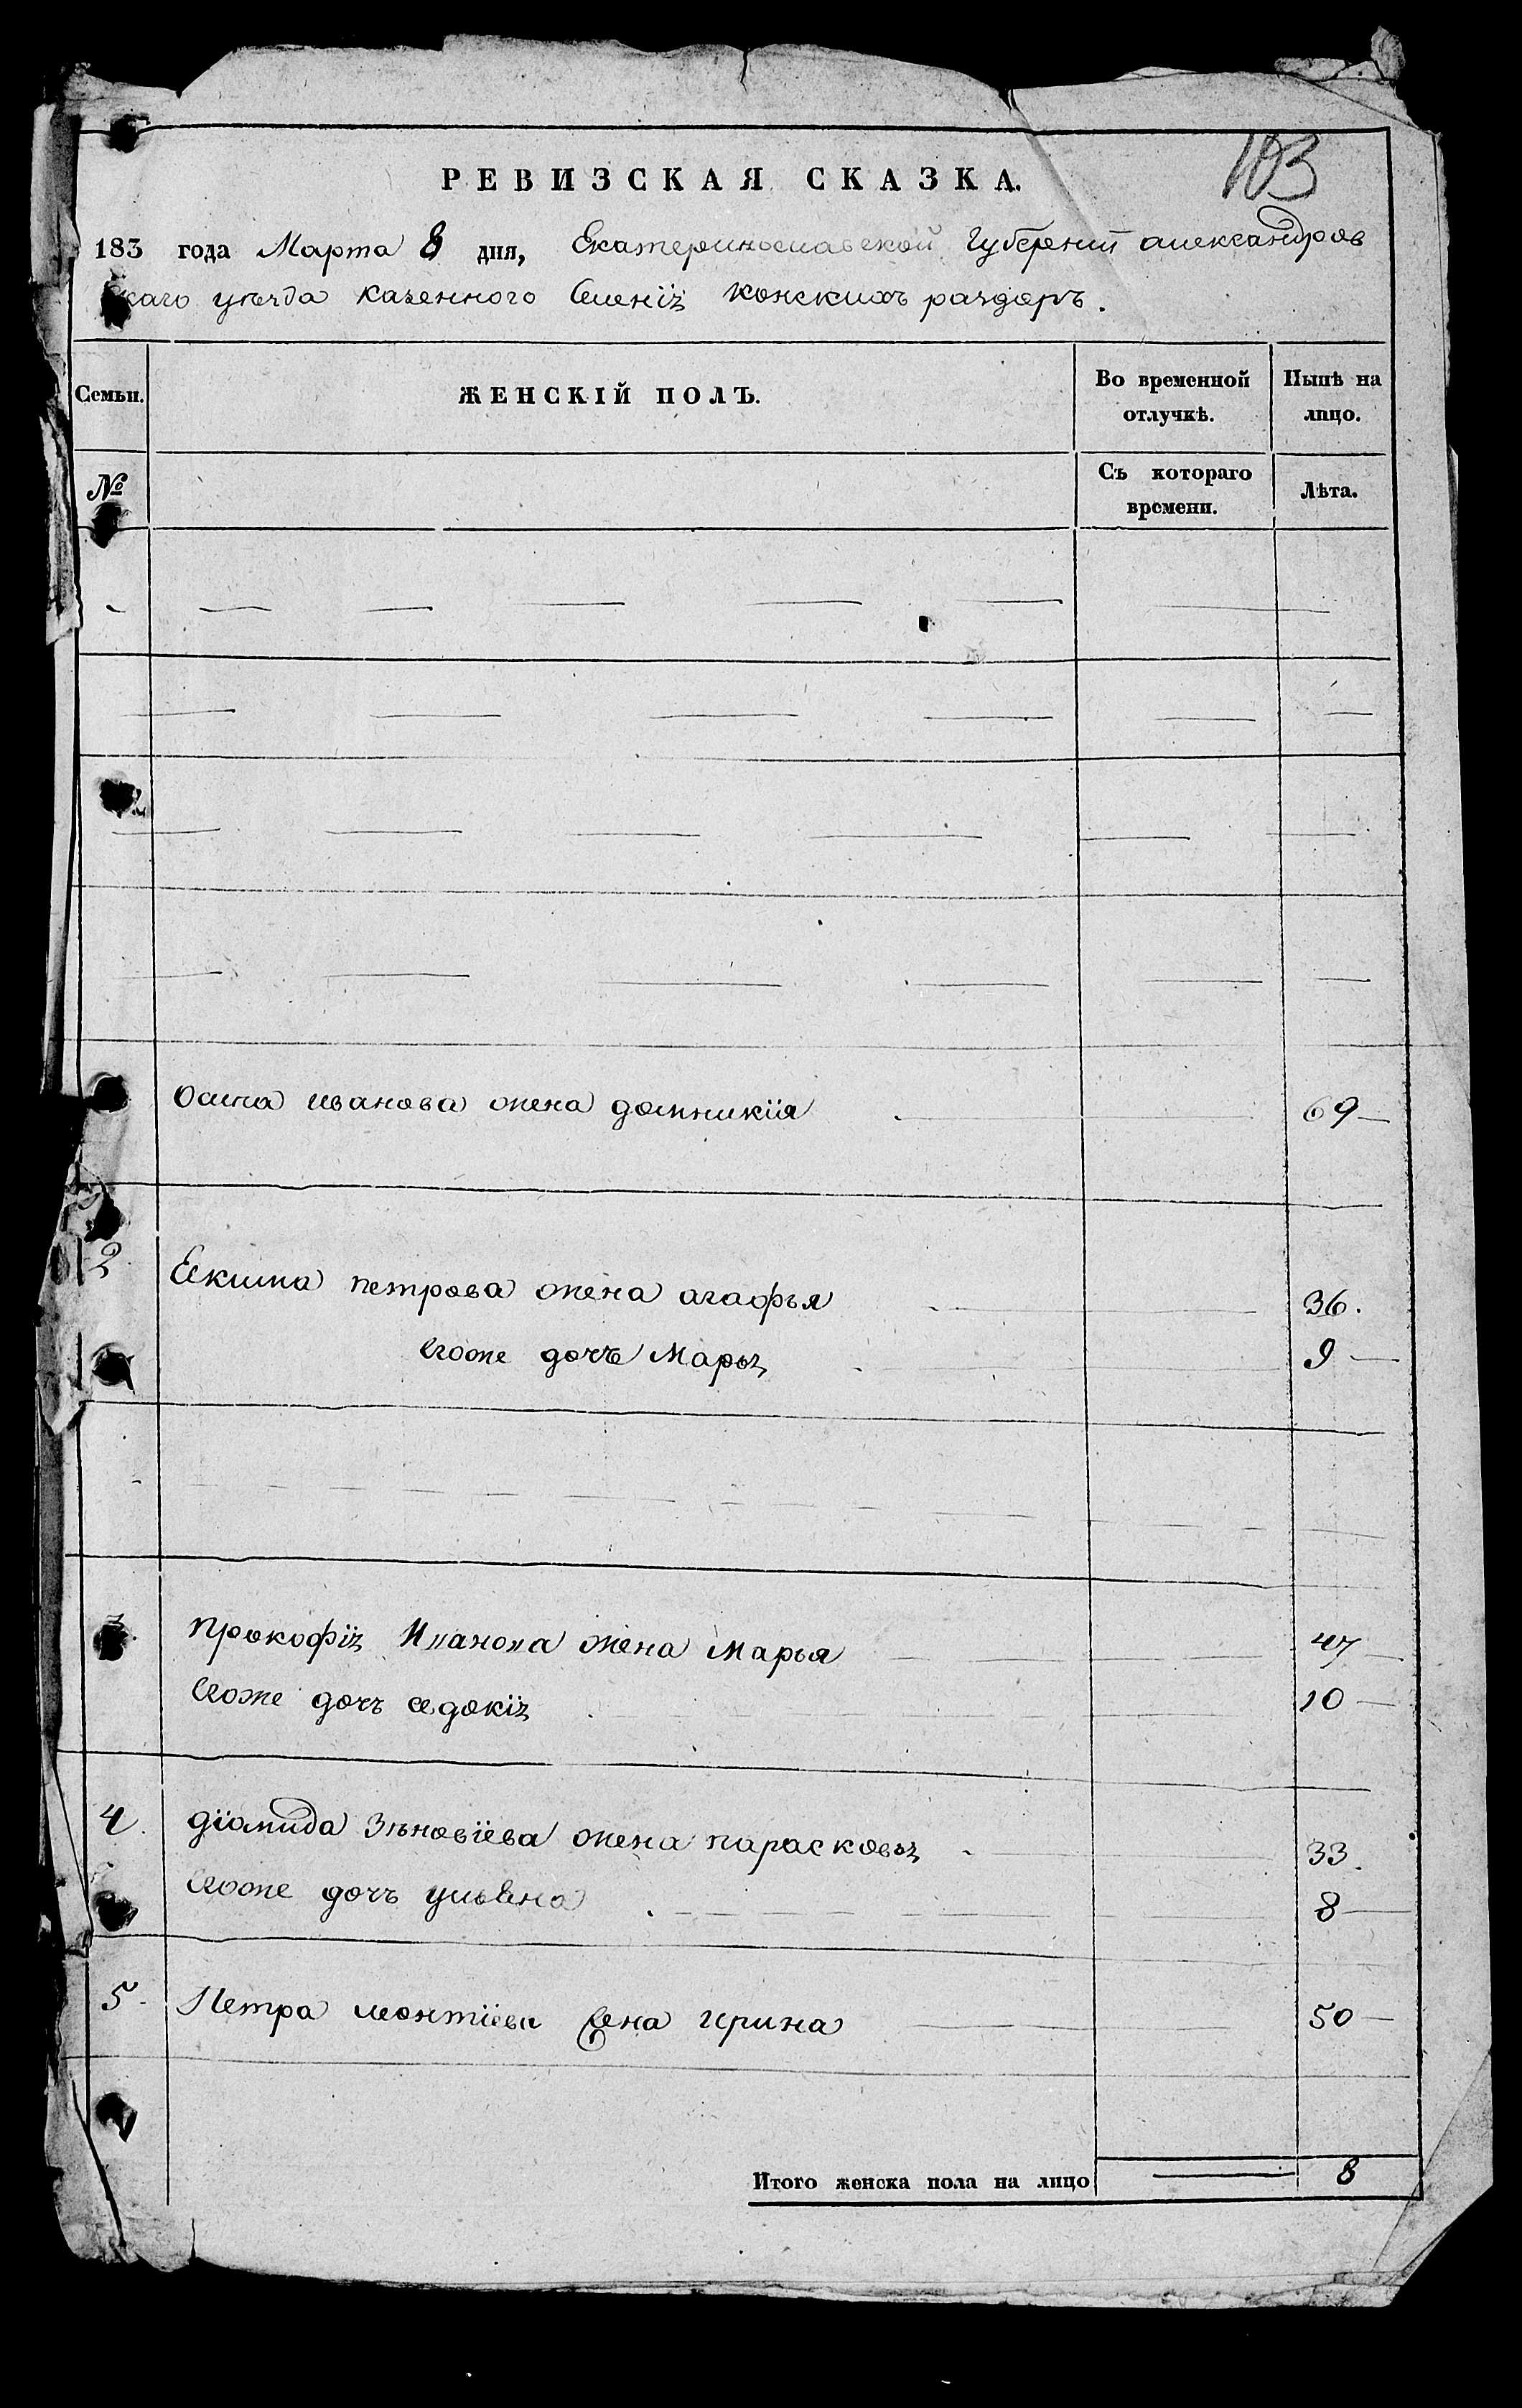 103
РЕВИЗСКАЯ СКАЗКА.
183 года Марта 8 дня, Екатеринославской Губерний александров
скаго уѣзда казенного Селенія конскихъ раздоръ.
Семьи. ЖЕНСКІЙ ПОЛЪ. Во временной отлучкѣ. Нынѣ на лицо.
№ Съ котораго времени. Лѣта.
осипа иванова жена домникія 69
2 Екима петрова жена агафья 36.
Егоже дочь Марья 9
3 прокофія Иванова жена Марья 47
Егоже дочъ едокія 10
4. діомида Зѣновіева жена парасковья 33.
Егоже дочъ ульяна 8
5 Петра леонтіева жена ирина 50
Итого женска пола на лицо 8